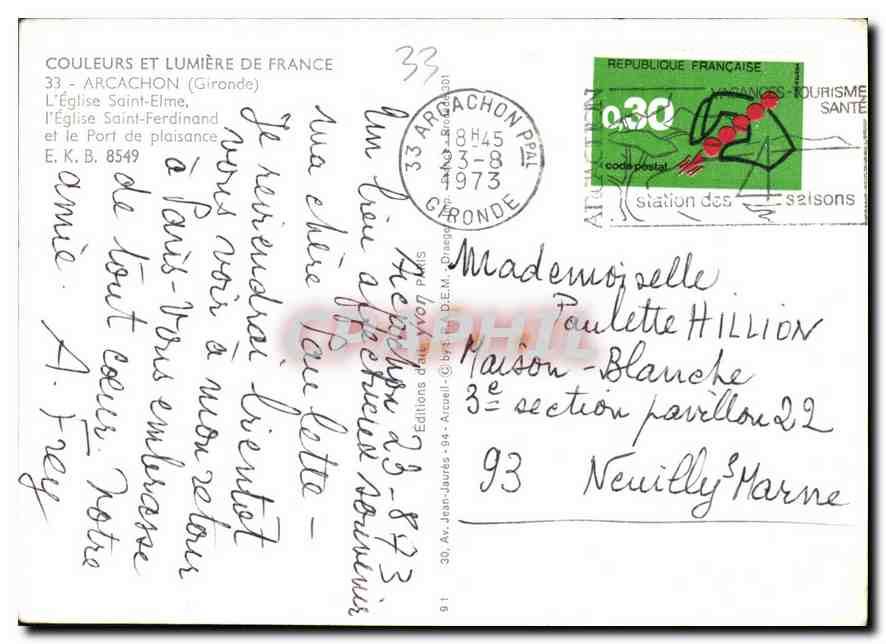 COULEURS ET LUMIÈRE DE FRANCE
33 - ARCACHON (Gironde)
L'Église Saint-Elme,
l'Église Saint-Ferdinand
et le Port de plaisance
E. K. B. 8549
33
33 ARCACHON PPAL
18H45
23-8
1973
GIRONDE
REPUBLIQUE FRANÇAISE
0,30
code postal
VACANCES-TOURISME
SANTÉ
ARCACHON
station des saisons
Arcachon 23-8 73
Un bien affectueux souvenir
ma chère Paulette -
Je reviendrai bientôt
vous voir à mon retour
à Paris - Vous embrasse
de tout cœur. Votre
amie. A. Frey
Éditions d'art Yvon PARIS
91 30, Av. Jean-Jaurès - 94 - Arcueil - © by S.P.A.D.E.M. - Draeger
Mademoiselle
Paulette HILLION
Maison-Blanche
3e section pavillon 22
93 Neuilly s Marne
CPAPHIL